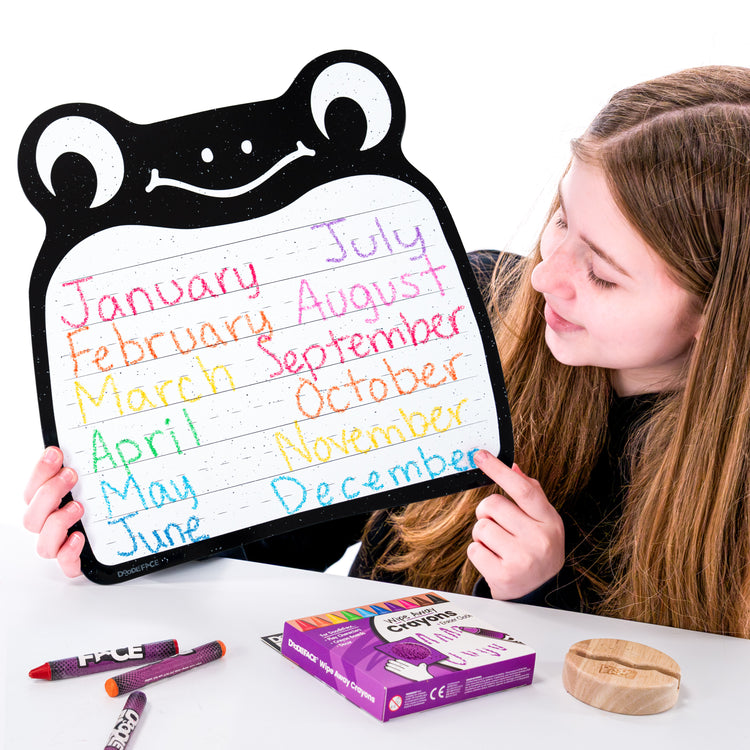 January
February
March
April
May
June
July
August
September
October
November
December
DOODLEFACE
FACE
DOODLE
FACE
Wipe Away
Crayons
DOODLEFACE® Wipe Away Crayons